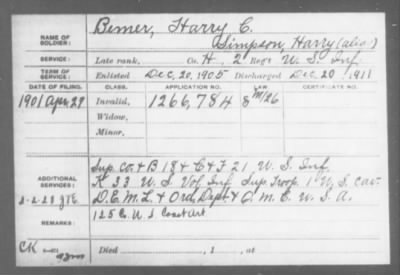 NAME OF SOLDIER: Bemer, Harry C.
Simpson, Harry (alias)
SERVICE: Late rank, Co. H, 2 Reg't U. S. Inf.
TERM OF SERVICE: Enlisted Dec. 20, 1905 Discharged Dec. 20 1911
DATE OF FILING. CLASS. APPLICATION NO. LAW. CERTIFICATE NO.
1901 Apr. 29 Invalid, 1266,784
Widow,
Minor,
ADDITIONAL SERVICES: Sup. Co. & B 18 & C & F 21 U. S. Inf.
K 33 U. S. Vol Inf. Sup. Troop 1" U. S. Cav.
D. E. M. L. & Ord. Dept & Q. M. C. U. S. A.
REMARKS: 125 Co. U S Coast Art
CK Died , 1 , at